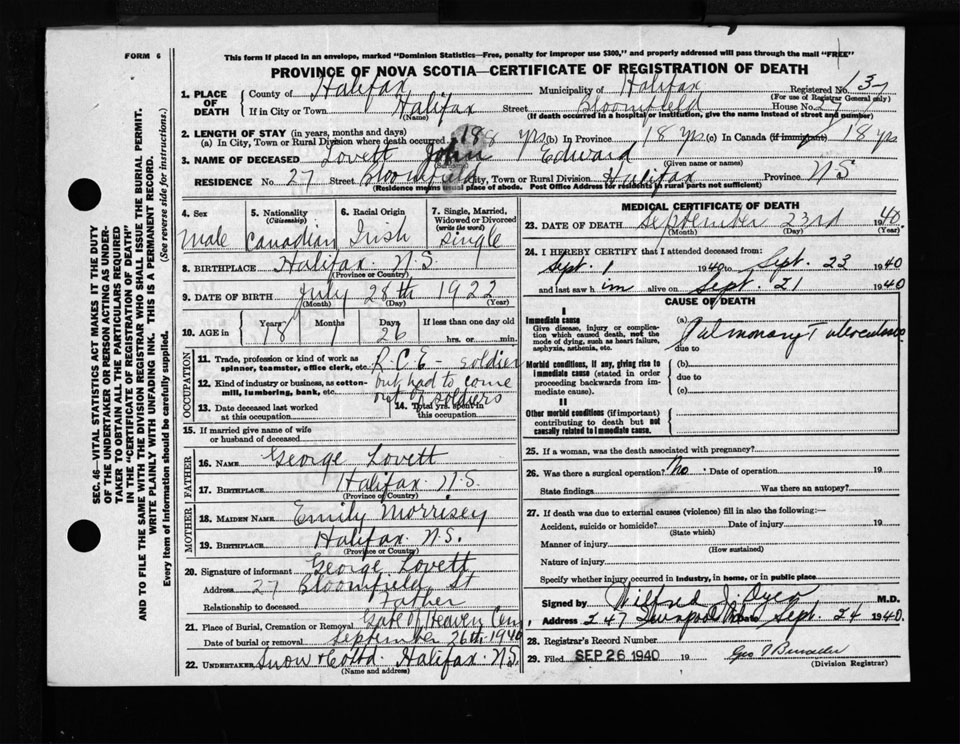 FORM 6
This form if placed in an envelope, marked "Dominion Statistics—Free, penalty for improper use $300," and properly addressed will pass through the mail "FREE"
PROVINCE OF NOVA SCOTIA—CERTIFICATE OF REGISTRATION OF DEATH
1. PLACE OF DEATH
County of Halifax Municipality of Halifax Registered No.
(For use of Registrar General only)
If in City or Town Halifax Street Bloomfield House No. 27
(Name) (If death occurred in a hospital or institution, give the name instead of street and number)
2. LENGTH OF STAY (in years, months and days)
(a) In City, Town or Rural Division where death occurred 18 yrs (b) In Province 18 yrs (c) In Canada (if immigrant) 18 yrs
3. NAME OF DECEASED Lovett John Edward
(Given name or names)
RESIDENCE No. 27 Street Bloomfield City, Town or Rural Division Halifax Province N S
(Residence means usual place of abode. Post Office Address for residents in rural parts not sufficient)
4. Sex
Male
5. Nationality (Citizenship)
Canadian
6. Racial Origin
Irish
7. Single, Married, Widowed or Divorced (write the word)
Single
8. BIRTHPLACE Halifax N.S.
(Province or Country)
9. DATE OF BIRTH July 28th 1922
(Month) (Day) (Year)
10. AGE in Years Months Days If less than one day old
18 1 26 hrs. or min.
OCCUPATION
11. Trade, profession or kind of work as spinner, teamster, office clerk, etc. R.C.E - soldier
12. Kind of industry or business, as cotton-mill, lumbering, bank, etc. but had to come
out of soldiers
13. Date deceased last worked at this occupation
14. Total yrs. spent in this occupation
15. If married give name of wife or husband of deceased
FATHER
16. NAME George Lovett
17. BIRTHPLACE Halifax N.S.
(Province or Country)
MOTHER
18. MAIDEN NAME Emily Morrisey
19. BIRTHPLACE Halifax N.S.
(Province or Country)
20. Signature of informant George Lovett
Address 27 Bloomfield St
Relationship to deceased Father
21. Place of Burial, Cremation or Removal Gate of Heaven Cem,
Date of burial or removal September 26th 1940
22. UNDERTAKER Snow & Co Halifax N.S.
(Name and address)
MEDICAL CERTIFICATE OF DEATH
23. DATE OF DEATH September 23rd 1940
(Month) (Day) (Year)
24. I HEREBY CERTIFY that I attended deceased from:
Sept. 1 1940 to Sept. 23 1940
and last saw him alive on Sept. 21 1940
CAUSE OF DEATH
I
Immediate cause
Give disease, injury or complication which caused death, not the mode of dying, such as heart failure, asphyxia, asthenia, etc.
(a) Pulmonary Tuberculosis
due to
Morbid conditions, if any, giving rise to immediate cause (stated in order proceeding backwards from immediate cause).
(b)
due to
(c)
II
Other morbid conditions (if important) contributing to death but not causally related to immediate cause.
25. If a woman, was the death associated with pregnancy?
26. Was there a surgical operation? No Date of operation 19
State findings Was there an autopsy?
27. If death was due to external causes (violence) fill in also the following:—
Accident, suicide or homicide? Date of injury 19
(State which)
Manner of injury
(How sustained)
Nature of injury
Specify whether injury occurred in industry, in home, or in public place
Signed by Wilfred J. Dyer M.D.
Address 247 Date Sept. 24 1940.
28. Registrar's Record Number
29. Filed SEP 26 1940 19
(Division Registrar)
SEC. 46—VITAL STATISTICS ACT MAKES IT THE DUTY
OF THE UNDERTAKER OR PERSON ACTING AS UNDERTAKER TO OBTAIN ALL THE PARTICULARS REQUIRED
IN THE "CERTIFICATE OF REGISTRATION OF DEATH"
AND TO FILE THE SAME WITH THE DIVISION REGISTRAR WHO SHALL ISSUE THE BURIAL PERMIT.
WRITE PLAINLY WITH UNFADING INK. THIS IS A PERMANENT RECORD.
Every item of information should be carefully supplied. (See reverse side for instructions.)